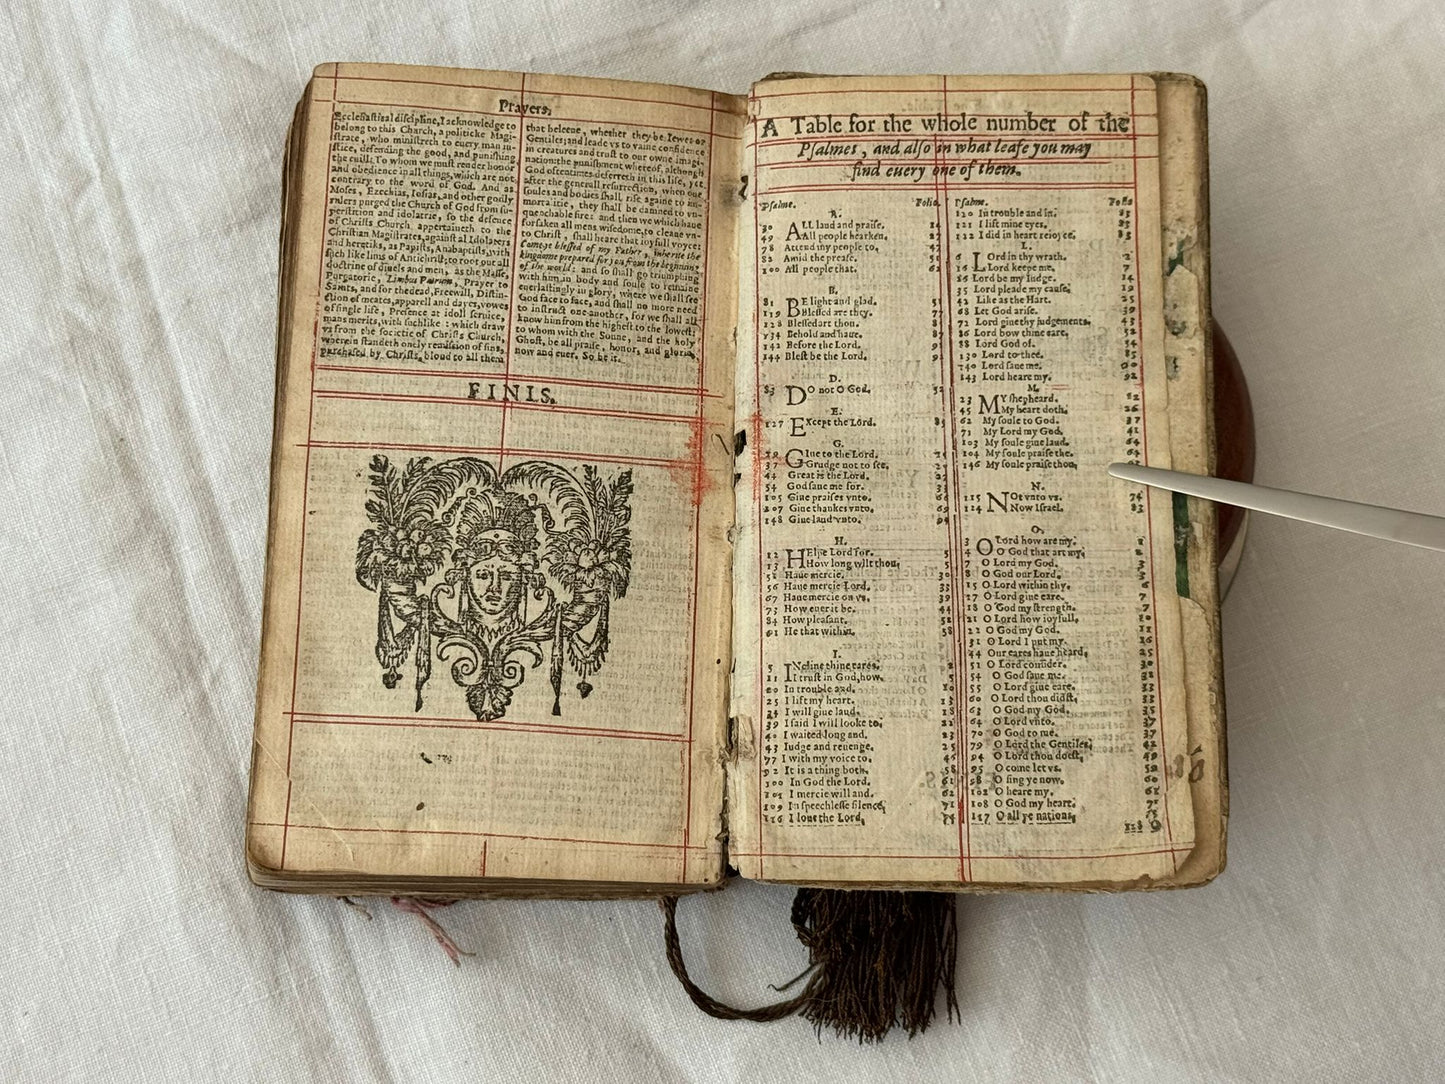 Prayers,
Ecclesiasticall discipline, I acknowledge to
belong to this Church, a politicke Magi-
strate, who ministreth to euery man iu-
stice, defending the good, and punishing
the euill: To whom we must render honor
and obedience in all things, which are not
contrary to the word of God. And as
Moses, Ezechias, Iosias, and other godly
rulers purged the Church of God from su-
perstition and idolatrie, so the defence
of Christs Church appertaineth to the
Christian Magistrates, against al Idolaters
and heretiks, as Papists, Anabaptists, with
such like lims of Antichrist; to root out all
doctrine of diuels and men, as the Masse,
Purgatorie, Limbus Patrum, Prayer to
Saints, and for the dead, Freewill, Distin-
ction of meates, apparell and dayes, vowes
of single life, Presence at idoll seruice,
mans merits, with suchlike: which draw
vs from the societie of Christs Church,
wherein standeth onely remission of sins,
purchased by Christs bloud to all them
that beleeue, whether they be Iewes or
Gentiles; and leade vs to vaine confidence
in creatures and trust to our owne imagi-
nation: the punishment whereof, although
God oftentimes deferreth in this life, yet
after the generall resurrection, when our
soules and bodies shall rise againe to im-
mortalitie, they shall be damned to vn-
quenchable fire: and then we which haue
forsaken all mens wisedome, to cleaue vn-
to Christ, shall heare that ioyfull voyce:
Come ye blessed of my Father, inherite the
kingdome prepared for you from the beginning
of the world: and so shall go triumphing
with him in body and soule to remaine
euerlastingly in glory, where we shall see
God face to face, and shall no more need
to instruct one another, for we shall all
know him from the highest to the lowest:
to whom with the Sonne, and the holy
Ghost, be all praise, honor, and glorie,
now and euer. So be it.
FINIS.
A Table for the whole number of the
Psalmes, and also in what leafe you may
find euery one of them.
Psalme. Folio.
A.
30 ALL laud and praise. 14
49 All people hearken. 27
78 Attend my people to. 47
82 Amid the prease. 51
100 All people that. 62
B.
81 BE light and glad. 51
119 Blessed are they. 77
128 Blessed art thou. 85
134 Behold and haue.
142 Before the Lord.
144 Blest be the Lord.
D.
83 DO not O God. 52
E.
127 EXcept the Lord. 85
G.
29 GIue to the Lord.
37 Grudge not to see.
48 Great is the Lord.
54 God saue me for.
105 Giue praises vnto. 66
107 Giue thankes vnto.
148 Giue laud vnto. 94
H.
12 HElpe Lord for. 5
13 How long wilt thou, 5
51 Haue mercie. 30
56 Haue mercie Lord. 33
67 Haue mercie on vs. 39
73 How euer it be. 44
84 How pleasant. 52
91 He that within. 58
I.
5 INcline thine eares. 2
11 I trust in God, how.
20 In trouble and. 10
25 I lift my heart.
34 I will giue laud.
39 I said I will looke to,
40 I waited long and.
43 Iudge and reuenge. 25
77 I with my voice to. 45
92 It is a thing both. 58
100 In God the Lord. 61
101 I mercie will and. 62
109 In speechlesse silence, 71
116 I loue the Lord,
Psalme. Folio
120 In trouble and in. 83
121 I lift mine eyes. 83
122 I did in heart reioyce. 83
L.
6 LOrd in thy wrath.
16 Lord keepe me. 7
26 Lord be my Iudge.
35 Lord pleade my cause. 19
42 Like as the Hart. 25
68 Let God arise. 39
72 Lord giue thy iudgements. 43
86 Lord bow thine eare. 52
88 Lord God of. 54
130 Lord to thee. 85
140 Lord saue me.
143 Lord heare my. 92
M.
23 MY shepheard. 12
45 My heart doth. 26
62 My soule to God. 37
71 My Lord my God. 42
103 My soule giue laud. 64
104 My soule praise the. 64
146 My soule praise thou,
N.
115 NOt vnto vs. 74
124 Now Israel. 83
O.
3 O Lord how are my. 2
4 O God that art my, 2
7 O Lord my God. 3
8 O God our Lord. 3
15 O Lord within thy. 6
17 O Lord giue eare. 7
18 O God my strength. 7
21 O Lord how ioyfull. 10
22 O God my God. 11
31 O Lord I put my. 16
44 Our eares haue heard, 25
51 O Lord consider. 30
54 O God saue me. 32
55 O Lord giue eare. 33
60 O Lord thou didst. 35
63 O God my God. 35
64 O Lord vnto. 37
70 O God to me. 37
79 O Lord the Gentiles, 49
94 O Lord thou doest, 49
95 O come let vs. 59
98 O sing ye now. 60
102 O heare my. 62
108 O God my heart. 71
117 O all ye nations,
118 O